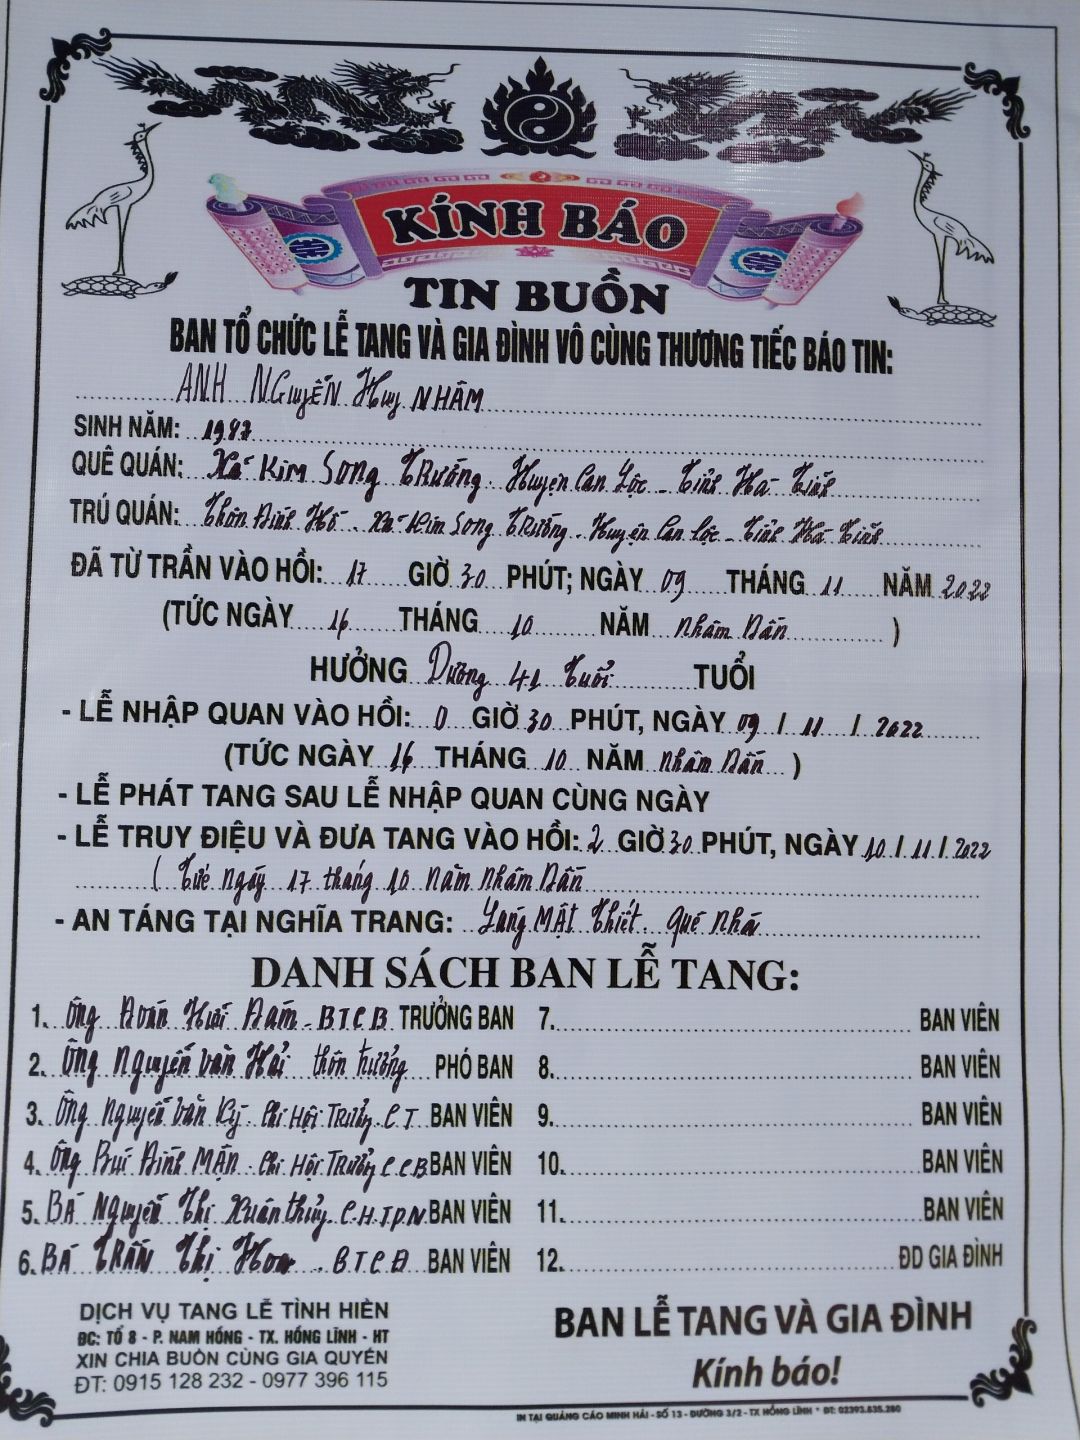 KÍNH BÁO
TIN BUỒN
BAN TỔ CHỨC LỄ TANG VÀ GIA ĐÌNH VÔ CÙNG THƯƠNG TIẾC BÁO TIN:
ANH NGUYỄN Huy NHÂM
SINH NĂM: 1982
QUÊ QUÁN: Xã Kim Song Trường. Huyện Can Lộc - Tỉnh Hà Tĩnh
TRÚ QUÁN: Thôn Đình Hồ. Xã Kim Song Trường. Huyện Can Lộc - Tỉnh Hà Tĩnh
ĐÃ TỪ TRẦN VÀO HỒI: 17 GIỜ 30 PHÚT; NGÀY 09 THÁNG 11 NĂM 2022
(TỨC NGÀY 16 THÁNG 10 NĂM Nhâm Dần )
HƯỞNG Dương 41 Tuổi TUỔI
- LỄ NHẬP QUAN VÀO HỒI: 0 GIỜ 30 PHÚT, NGÀY 09 / 11 / 2022
(TỨC NGÀY 16 THÁNG 10 NĂM Nhâm Dần )
- LỄ PHÁT TANG SAU LỄ NHẬP QUAN CÙNG NGÀY
- LỄ TRUY ĐIỆU VÀ ĐƯA TANG VÀO HỒI: 2 GIỜ 30 PHÚT, NGÀY 10 / 11 / 2022
( Tức ngày 17 tháng 10 năm Nhâm Dần
- AN TÁNG TẠI NGHĨA TRANG: MẬT Thiết. Quê Nhà
DANH SÁCH BAN LỄ TANG:
1. Ông Đoàn Hải Đàm - BTCB TRƯỞNG BAN 7. BAN VIÊN
2. Ông Nguyễn Văn Hải thôn trưởng PHÓ BAN 8. BAN VIÊN
3. Ông Nguyễn Văn Kỷ. Chi Hội Trưởng CT BAN VIÊN 9. BAN VIÊN
4. Ông Bùi Đình MẬN. Chi Hội Trưởng CCB BAN VIÊN 10. BAN VIÊN
5. Bà Nguyễn Thị Xuân Thủy C.H.T.P.N BAN VIÊN 11. BAN VIÊN
6. Bà TRẦN Thị Hoa. BTCĐ BAN VIÊN 12. ĐD GIA ĐÌNH
DỊCH VỤ TANG LỄ TÌNH HIỀN
ĐC: TỔ 8 - P. NAM HỒNG - TX. HỒNG LĨNH - HT
XIN CHIA BUỒN CÙNG GIA QUYẾN
ĐT: 0915 128 232 - 0977 396 115
BAN LỄ TANG VÀ GIA ĐÌNH
Kính báo!
IN TẠI QUẢNG CÁO MINH HẢI - SỐ 13 - ĐƯỜNG 3/2 - TX HỒNG LĨNH * ĐT: 02393.835.280